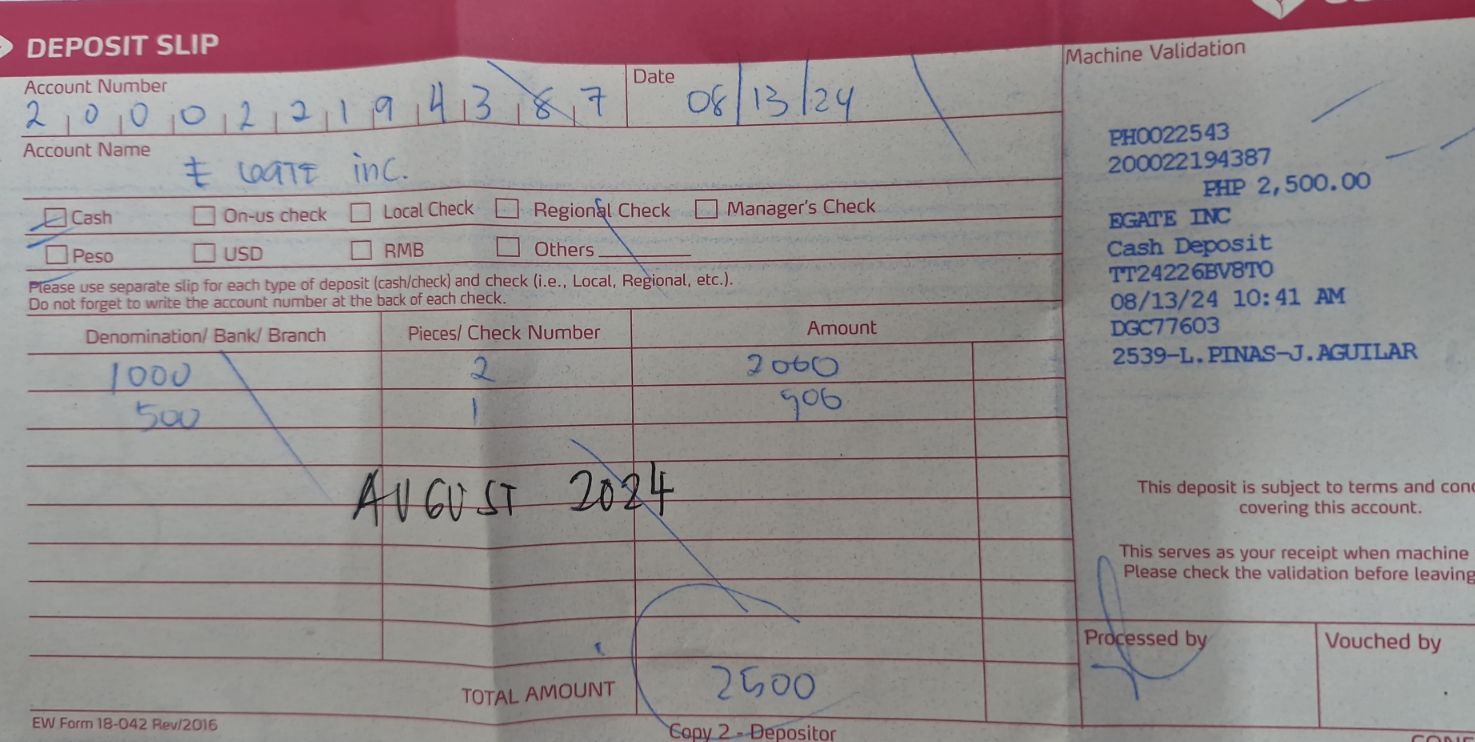 DEPOSIT SLIP
Account Number
200022194387
Date
08/13/24
Account Name
E GATE inc.
Cash
On-us check
Local Check
Regional Check
Manager's Check
Peso
USD
RMB
Others
Please use separate slip for each type of deposit (cash/check) and check (i.e., Local, Regional, etc.).
Do not forget to write the account number at the back of each check.
Denomination/ Bank/ Branch
Pieces/ Check Number
Amount
1000 2 2000
500 1 500
AUGUST 2024
TOTAL AMOUNT 2500
EW Form 18-042 Rev/2016
Copy 2 - Depositor
Machine Validation
PH0022543
200022194387
PHP 2,500.00
EGATE INC
Cash Deposit
TT24226BV8T0
08/13/24 10:41 AM
DGC77603
2539-L.PINAS-J.AGUILAR
This deposit is subject to terms and
covering this account.
This serves as your receipt when machine
Please check the validation before leaving
Processed by
Vouched by